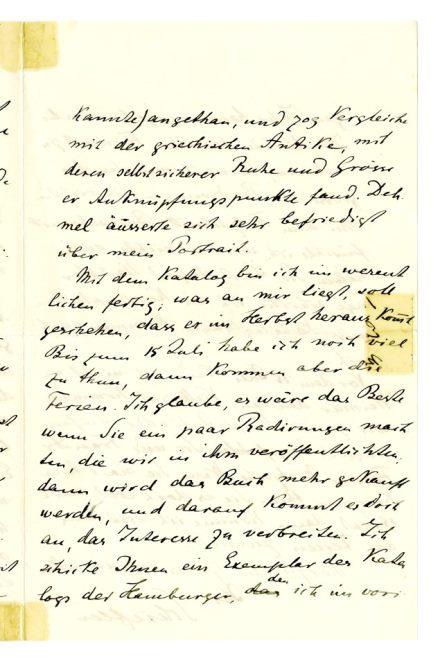 kannte) angethan, und zog Vergleiche
mit der griechischen Antike, mit
deren selbstsicherer Ruhe und Grösse
er Anknüpfungspunkte fand. Deh-
mel äusserte sich sehr befriedigt
über mein Portrait.
Mit dem Katalog bin ich im wesent-
lichen fertig; was an mir liegt, soll
geschehen, dass er im Herbst heraus kommt
Bis zum 15 Juli habe ich noch viel
zu thun, dann kommen aber die
Ferien. Ich glaube, es wäre das Beste
wenn Sie ein paar Radirungen mach-
ten, die wir in ihm veröffentlichten,
dann wird das Buch mehr gekauft
werden, und darauf kommt es doch
an, das Interesse zu verbreiten. Ich
schicke Ihnen ein Exemplar des Kata-
logs der Hamburger, den ich im vori-